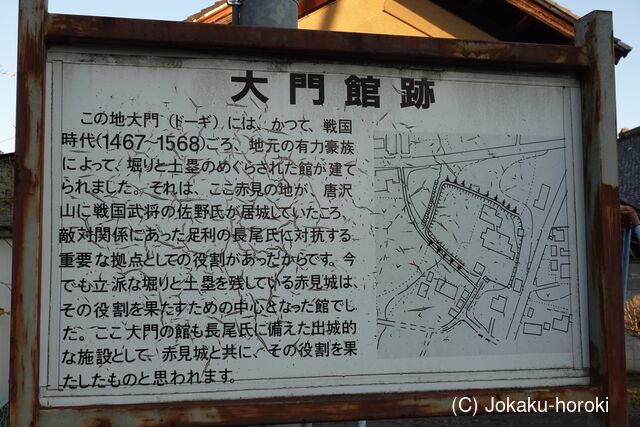 大門館跡
この地大門（ドーギ）には、かつて、戦国
時代(1467～1568)ごろ、地元の有力豪族
によって、堀りと土塁のめぐらされた館が建て
られました。それは、ここ赤見の地が、唐沢
山に戦国武将の佐野氏が居城していたころ、
敵対関係にあった足利の長尾氏に対抗する
重要な拠点としての役割があったからです。今
でも立派な堀りと土塁を残している赤見城は、
その役割を果たすための中心となった館でし
た。ここ大門の館も長尾氏に備えた出城的
な施設として、赤見城と共に、その役割を果
たしたものと思われます。
(C) Jokaku-horoki